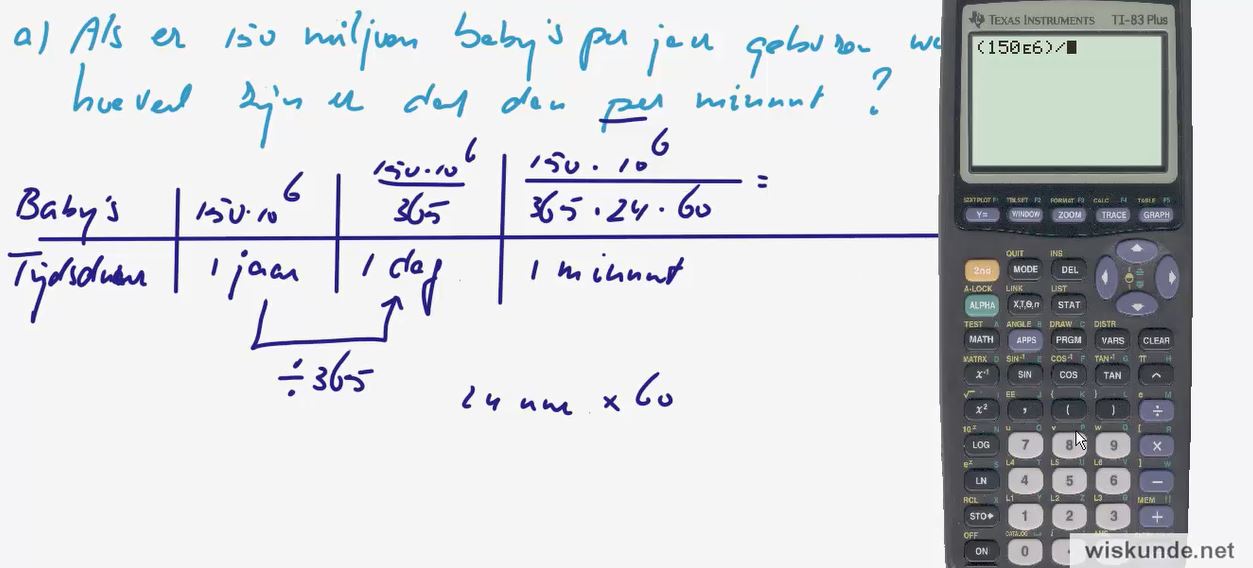 a) Als er 150 miljoen baby's per jaar geboren
hoeveel zijn er dat dan per minuut ?
Baby's | 150·10⁶ | 150·10⁶ / 365 | 150·10⁶ / 365·24·60 =
Tijdsduur | 1 jaar | 1 dag | 1 minuut
÷365
24 uur × 60
TEXAS INSTRUMENTS TI-83 Plus
(150E6)/
STATPLOT F1 TBLSET F2 FORMAT F3 CALC F4 TABLE F5
Y= WINDOW ZOOM TRACE GRAPH
QUIT INS
2nd MODE DEL
A-LOCK LINK LIST
ALPHA X,T,θ,n STAT
TEST A ANGLE B DRAW C DISTR
MATH APPS PRGM VARS CLEAR
MATRX D SIN⁻¹ E COS⁻¹ F TAN⁻¹ G π H
x⁻¹ SIN COS TAN ^
√ I EE J { K } L e M
x² , ( ) ÷
10ˣ N u O v P w Q [ R
LOG 7 8 9 ×
eˣ S L4 T L5 U L6 V ] W
LN 4 5 6 −
RCL X L1 Y L2 Z L3 θ MEM "
STO▸ 1 2 3 +
OFF CATALOG
ON 0
wiskunde.net